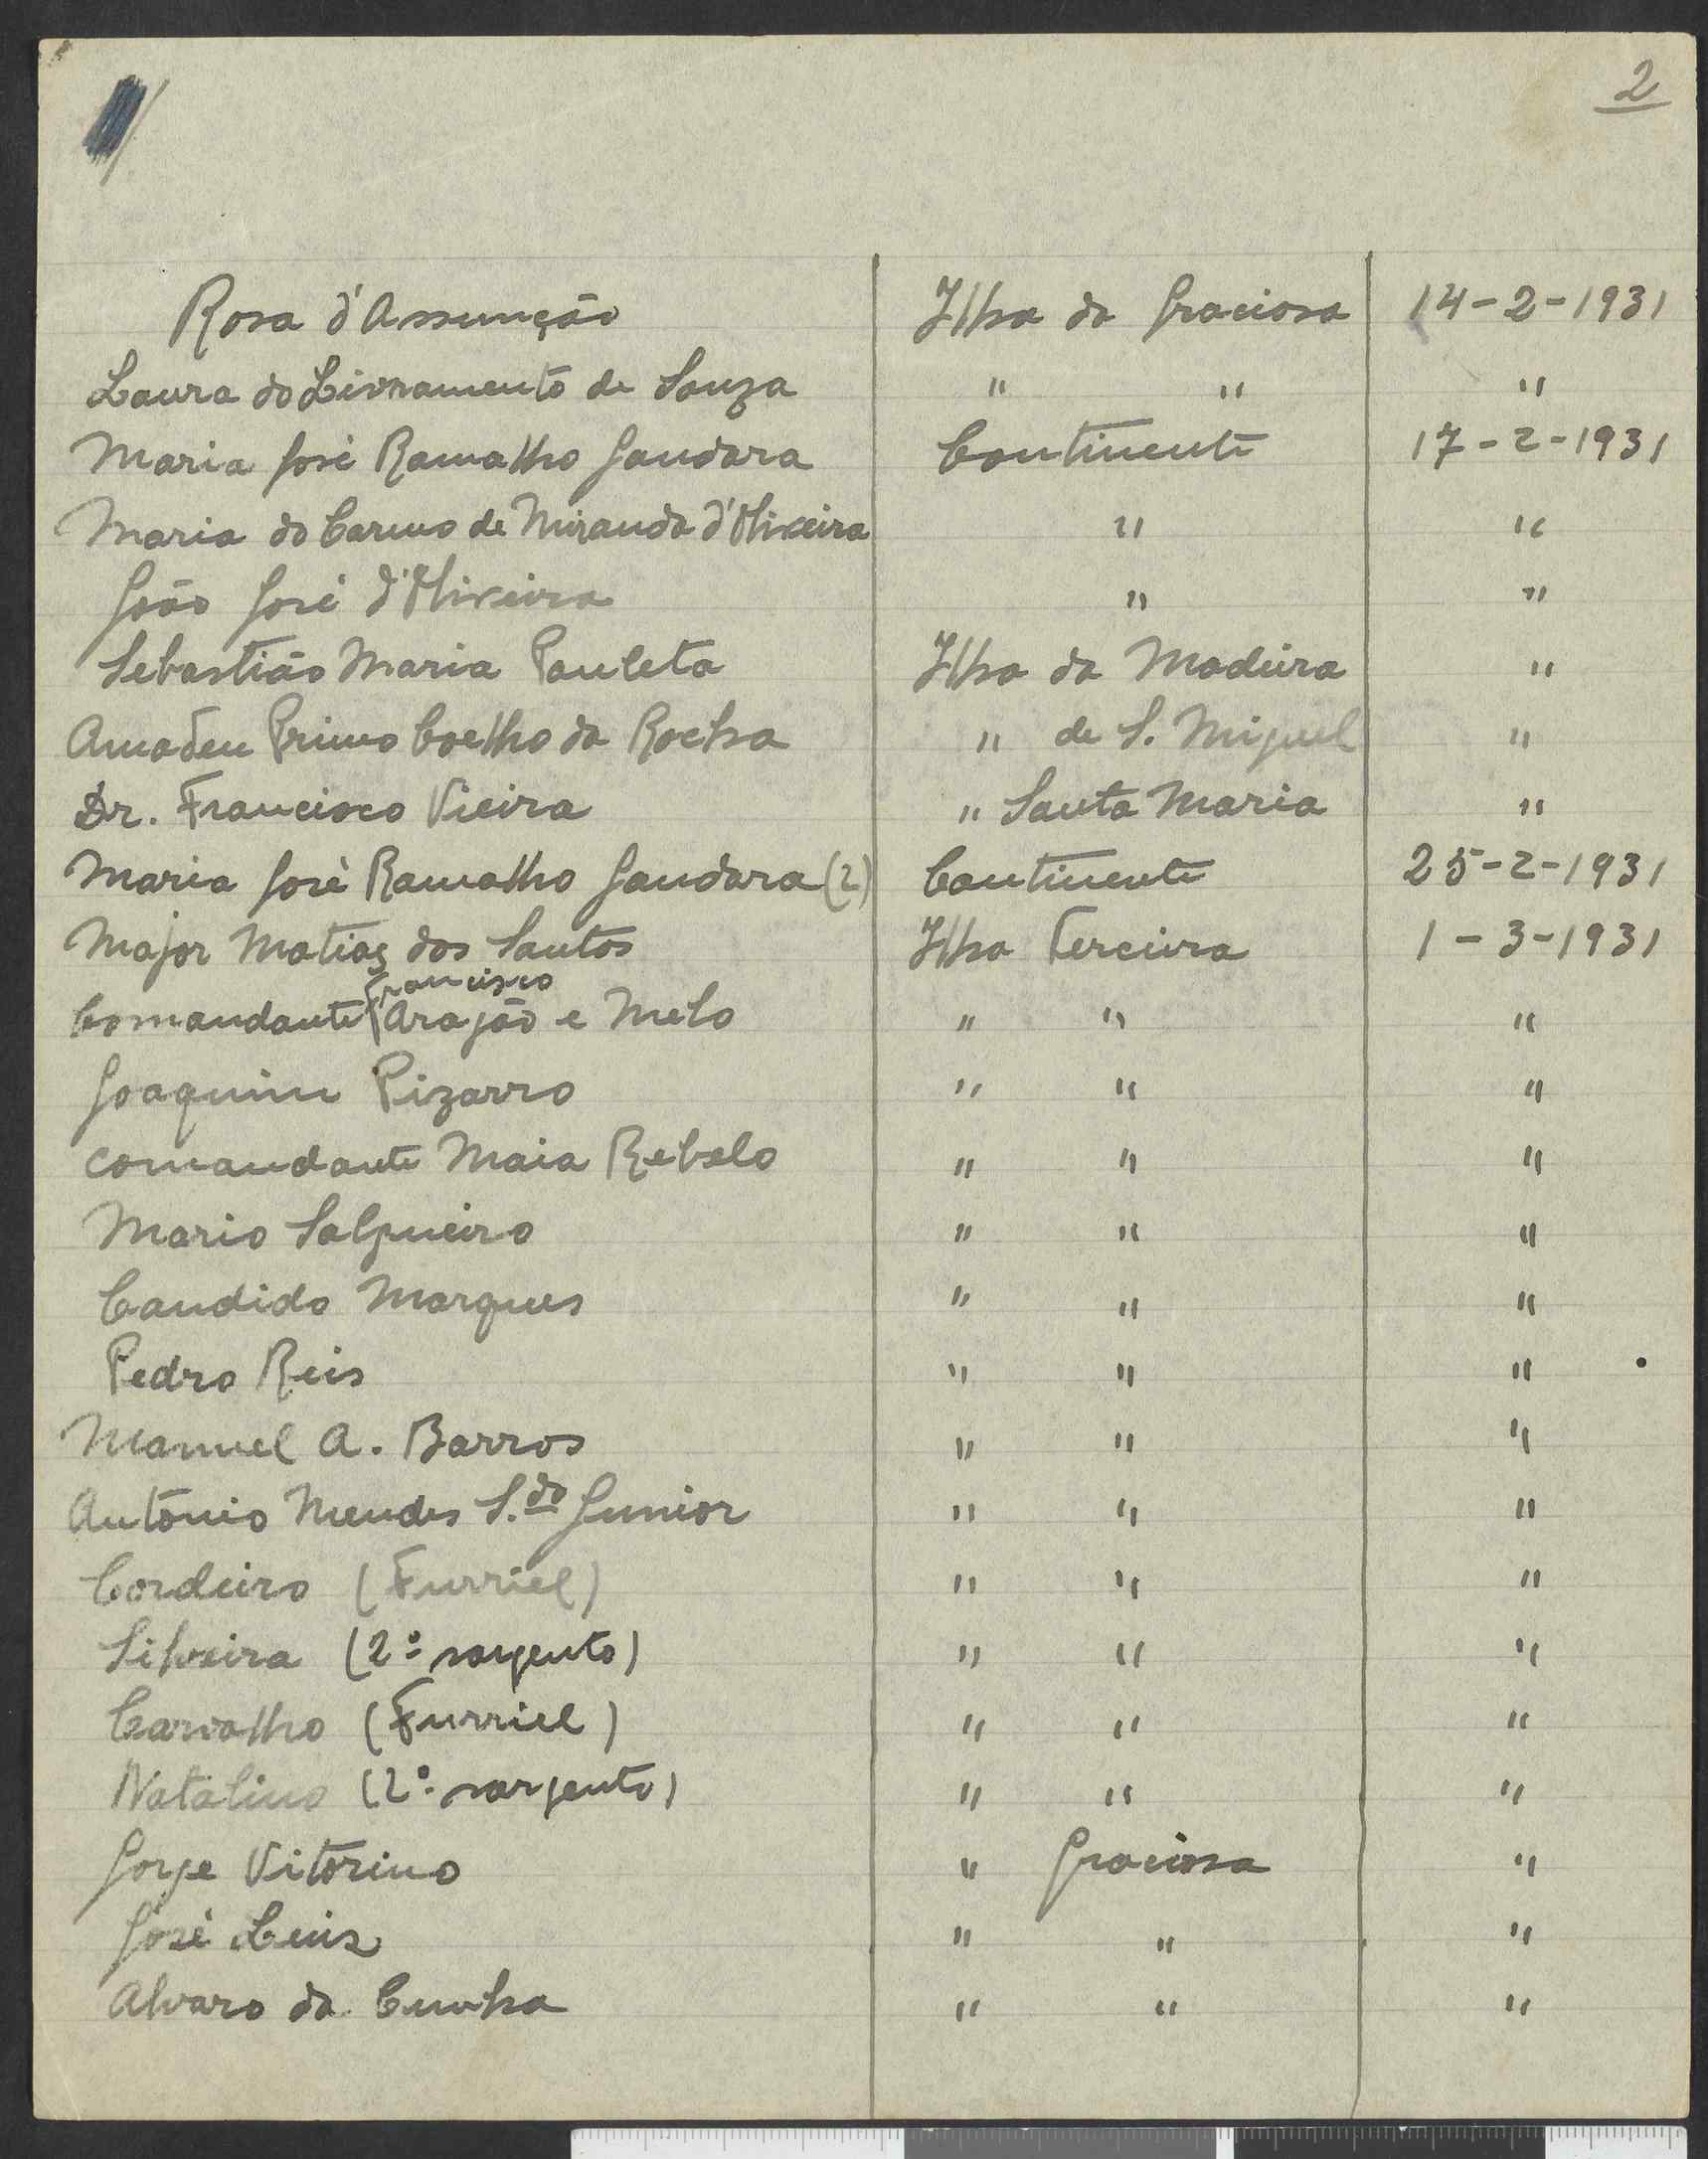 2
Rosa d'Assunção Ilha da Graciosa 14-2-1931
Laura do Livramento de Souza " " "
Maria José Ramalho Gandara Continente 17-2-1931
Maria do Carmo de Miranda d'Oliveira " "
João José d'Oliveira " "
Sebastião Maria Pauleta Ilha da Madeira "
Amadeu Primo Coelho da Rocha " de S. Miguel "
Dr. Francisco Vieira " Santa Maria "
Maria José Ramalho Gandara (2) Continente 25-2-1931
Major Matias dos Santos Ilha Terceira 1-3-1931
Comandante Francisco Aragão e Melo " " "
Joaquim Pizarro " " "
Comandante Maia Rebelo " " "
Mario Salgueiro " " "
Candido Marques " " "
Pedro Reis " " "
Manuel A. Barros " " "
António Mendes S.do Junior " " "
Cordeiro (Furriel) " " "
Silveira (2º sargento) " " "
Carvalho (Furriel) " " "
Natalino (2º sargento) " " "
Jorge Vitorino " Graciosa "
José Luis " " "
Alvaro da Cunha " " "